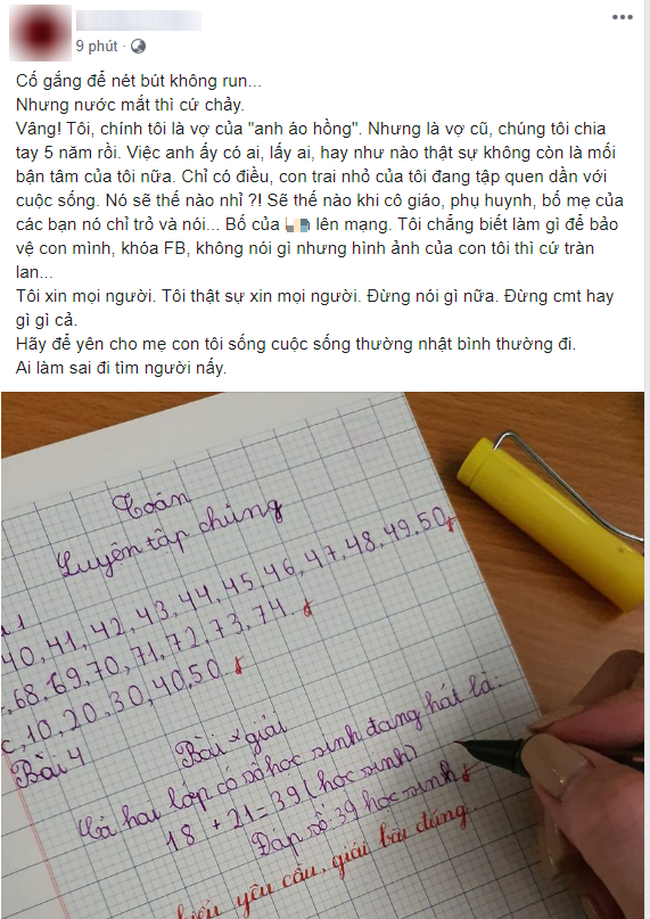 9 phút ·
Cố gắng để nét bút không run...
Nhưng nước mắt thì cứ chảy.
Vâng! Tôi, chính tôi là vợ của "anh áo hồng". Nhưng là vợ cũ, chúng tôi chia
tay 5 năm rồi. Việc anh ấy có ai, lấy ai, hay như nào thật sự không còn là mối
bận tâm của tôi nữa. Chỉ có điều, con trai nhỏ của tôi đang tập quen dần với
cuộc sống. Nó sẽ thế nào nhỉ ?! Sẽ thế nào khi cô giáo, phụ huynh, bố mẹ của
các bạn nó chỉ trỏ và nói... Bố của lên mạng. Tôi chẳng biết làm gì để bảo
vệ con mình, khóa FB, không nói gì nhưng hình ảnh của con tôi thì cứ tràn
lan...
Tôi xin mọi người. Tôi thật sự xin mọi người. Đừng nói gì nữa. Đừng cmt hay
gì gì cả.
Hãy để yên cho mẹ con tôi sống cuộc sống thường nhật bình thường đi.
Ai làm sai đi tìm người nấy.
Toán
Luyện tập chung
1
40, 41, 42, 43, 44, 45, 46, 47, 48, 49, 50
, 68, 69, 70, 71, 72, 73, 74.
c, 10, 20, 30, 40, 50
Bài 4
Bài giải
Cả hai lớp có số học sinh đang hát là:
18 + 21 = 39 (học sinh)
Đáp số: 39 học sinh
hiểu yêu cầu, giải bài đúng.